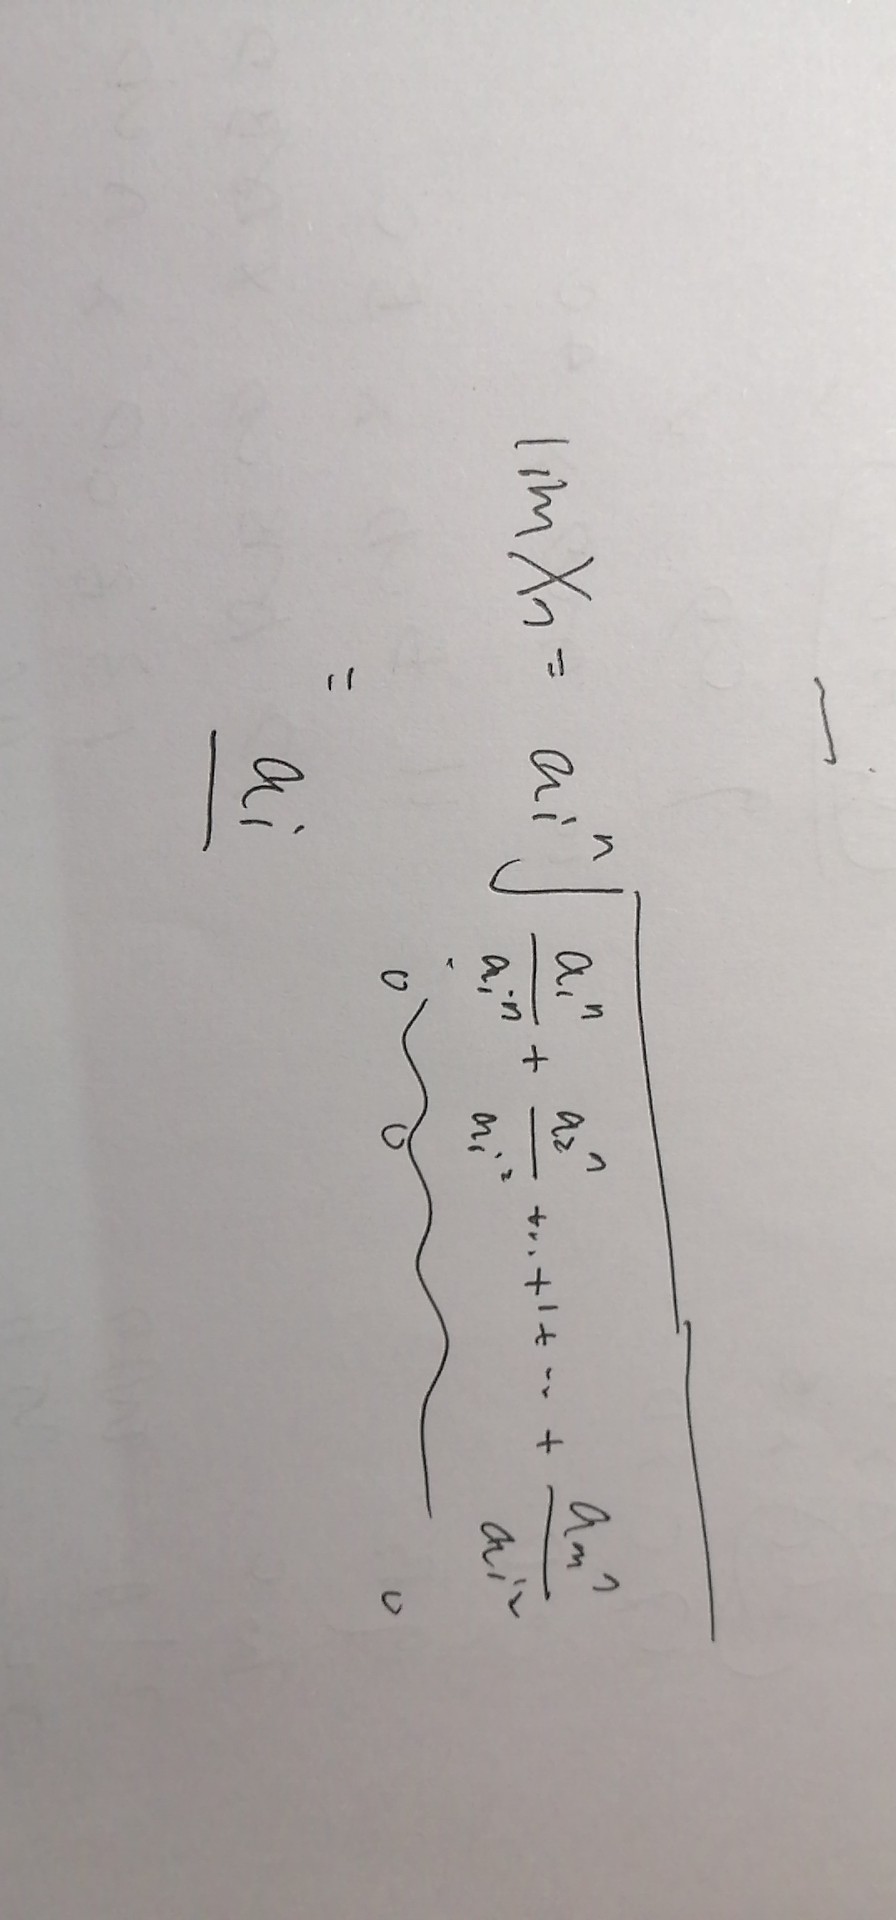 lim Xₙ = aᵢ ⁿ√(a₁ⁿ/aᵢⁿ + a₂ⁿ/aᵢⁿ + ... + 1 + ... + aₘⁿ/aᵢⁿ)
0 0 0
= aᵢ